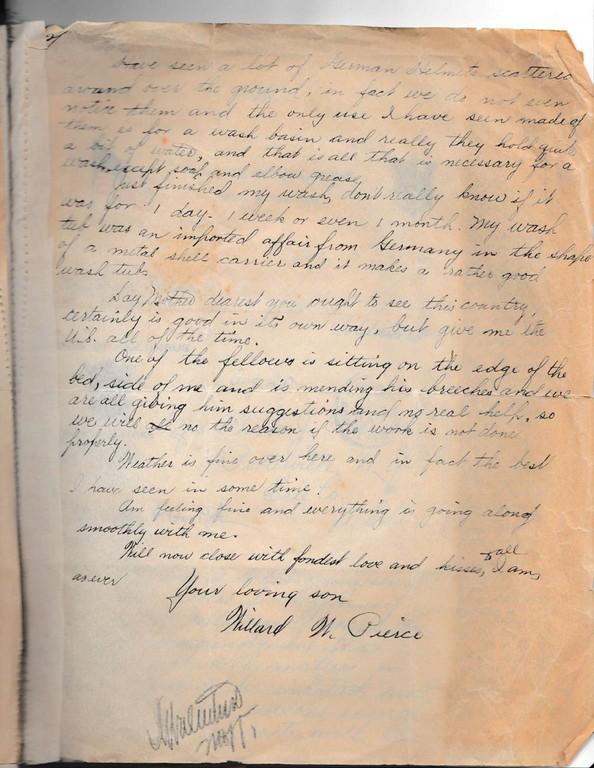 have seen a lot of German Helmets scattered
around over the ground, in fact we do not even
notice them and the only use I have seen made of
them is for a wash basin and really they hold quite
a bit of water, and that is all that is necessary for a
wash, except soap and elbow grease.
Just finished my wash, dont really know if it
was for 1 day - 1 week or even 1 month. My wash
tub was an imported affair from Germany in the shape
of a metal shell carrier and it makes a rather good
wash tub.
Say Mother dearest you ought to see this country,
certainly is good in its own way, but give me the
U.S. all of the time.
One of the fellows is sitting on the edge of the
bed, side of me and is mending his breeches and we
are all giving him suggestions and no real help, so
we will all no the reason if the work is not done
properly.
Weather is fine over here and in fact the best
I have seen in some time.
Am feeling fine and everything is going along
smoothly with me.
Will now close with fondest love and kisses, to all
I am,
as ever
Your loving son
Willard W. Pierce